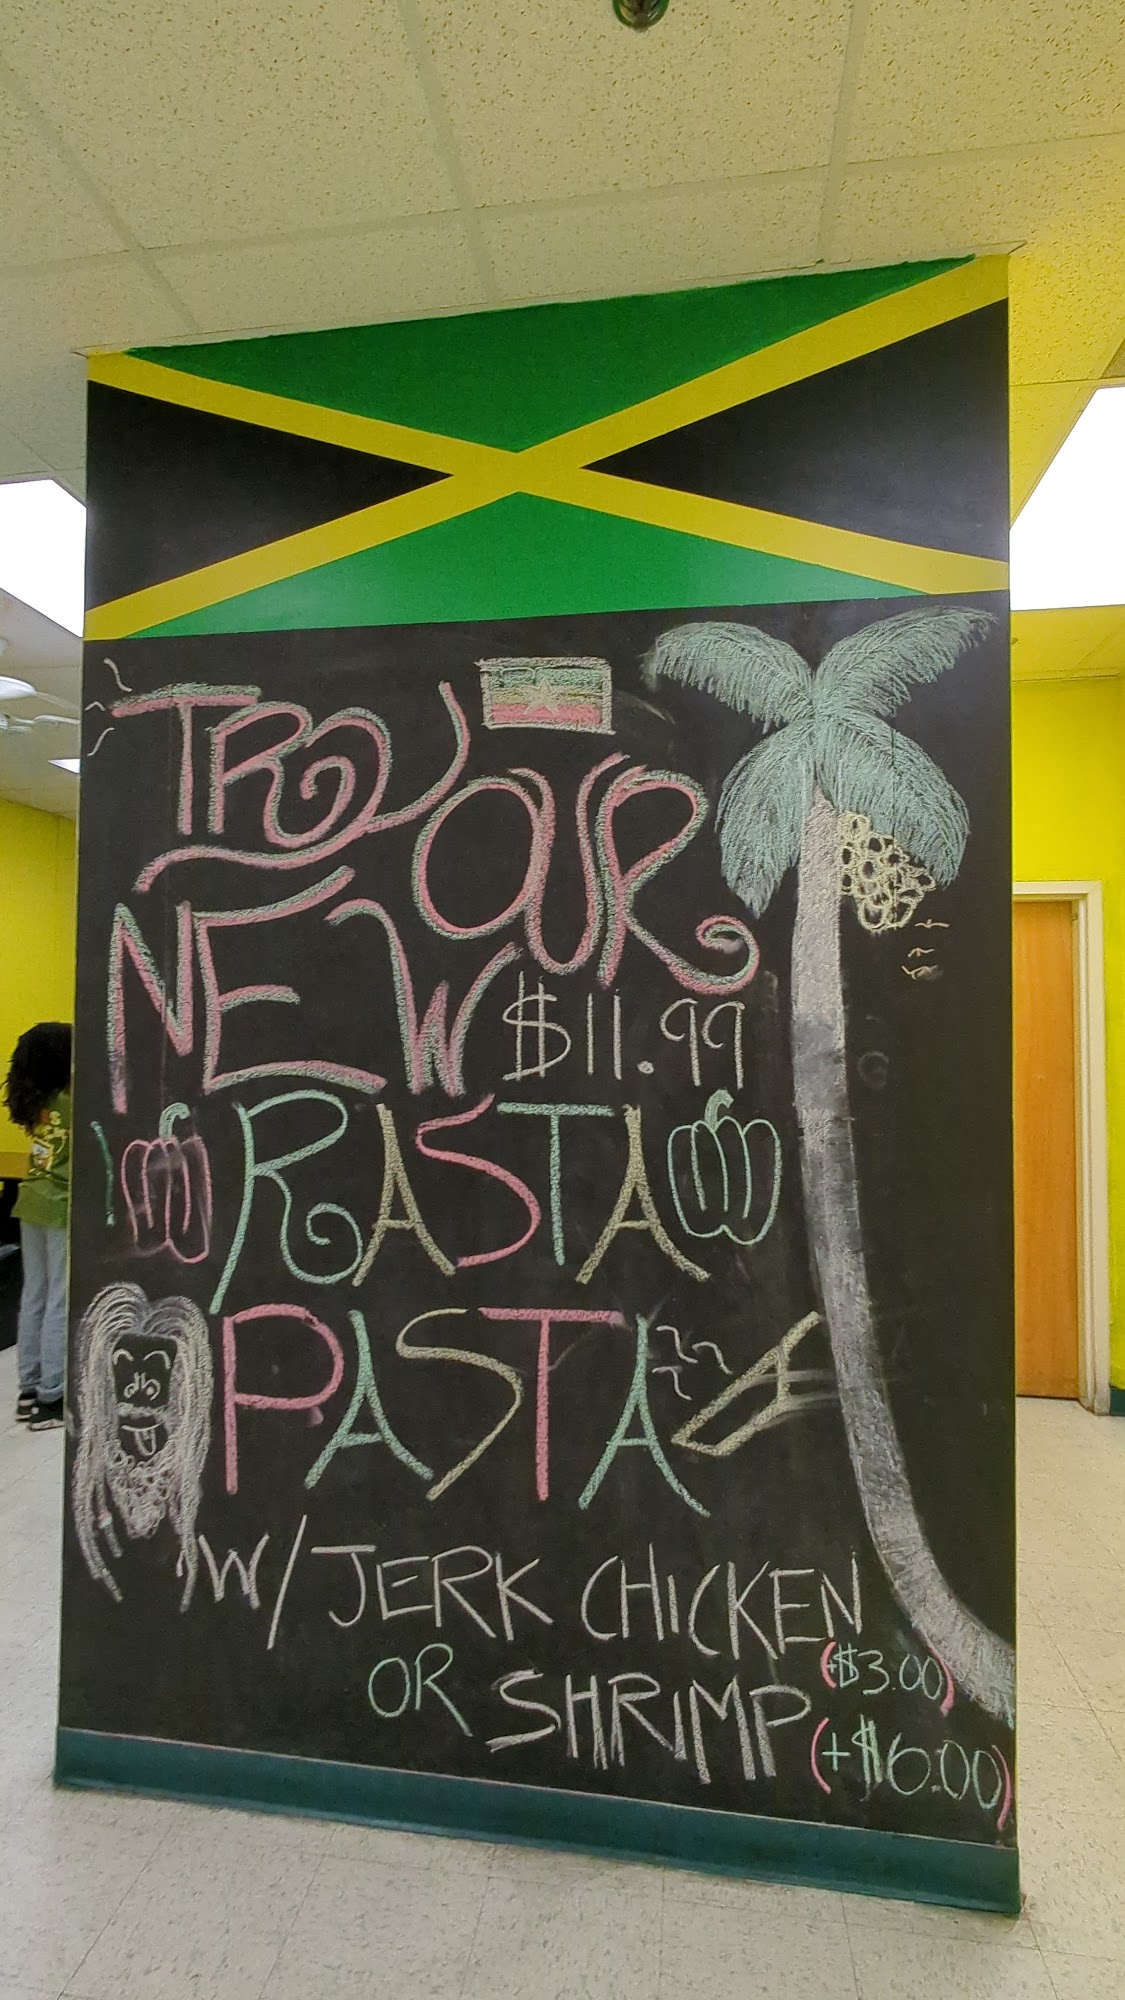 TRY OUR
NEW $11.99
RASTA
PASTA
W/ JERK CHICKEN
(+$3.00)
OR SHRIMP
(+$6.00)